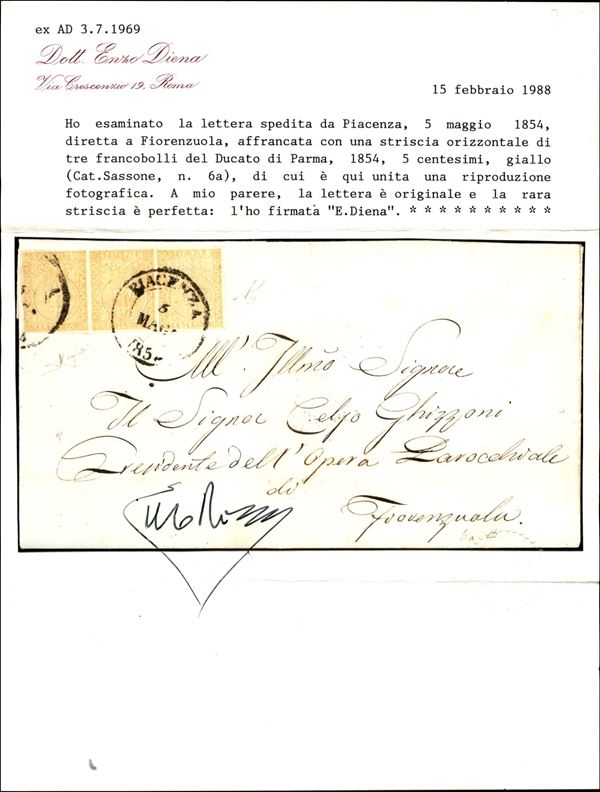 ex AD 3.7.1969
Dott. Enzo Diena
Via Crescenzio 19, Roma
15 febbraio 1988
Ho esaminato la lettera spedita da Piacenza, 5 maggio 1854,
diretta a Fiorenzuola, affrancata con una striscia orizzontale di
tre francobolli del Ducato di Parma, 1854, 5 centesimi, giallo
(Cat.Sassone, n. 6a), di cui è qui unita una riproduzione
fotografica. A mio parere, la lettera è originale e la rara
striscia è perfetta: l'ho firmata "E.Diena". * * * * * * * * * *
PIACENZA
5
MAG
185
All' Illmo Signore
Il Signor Celso Ghizzoni
Presidente dell' Opera Parocchiale
di
Fiorenzuola.